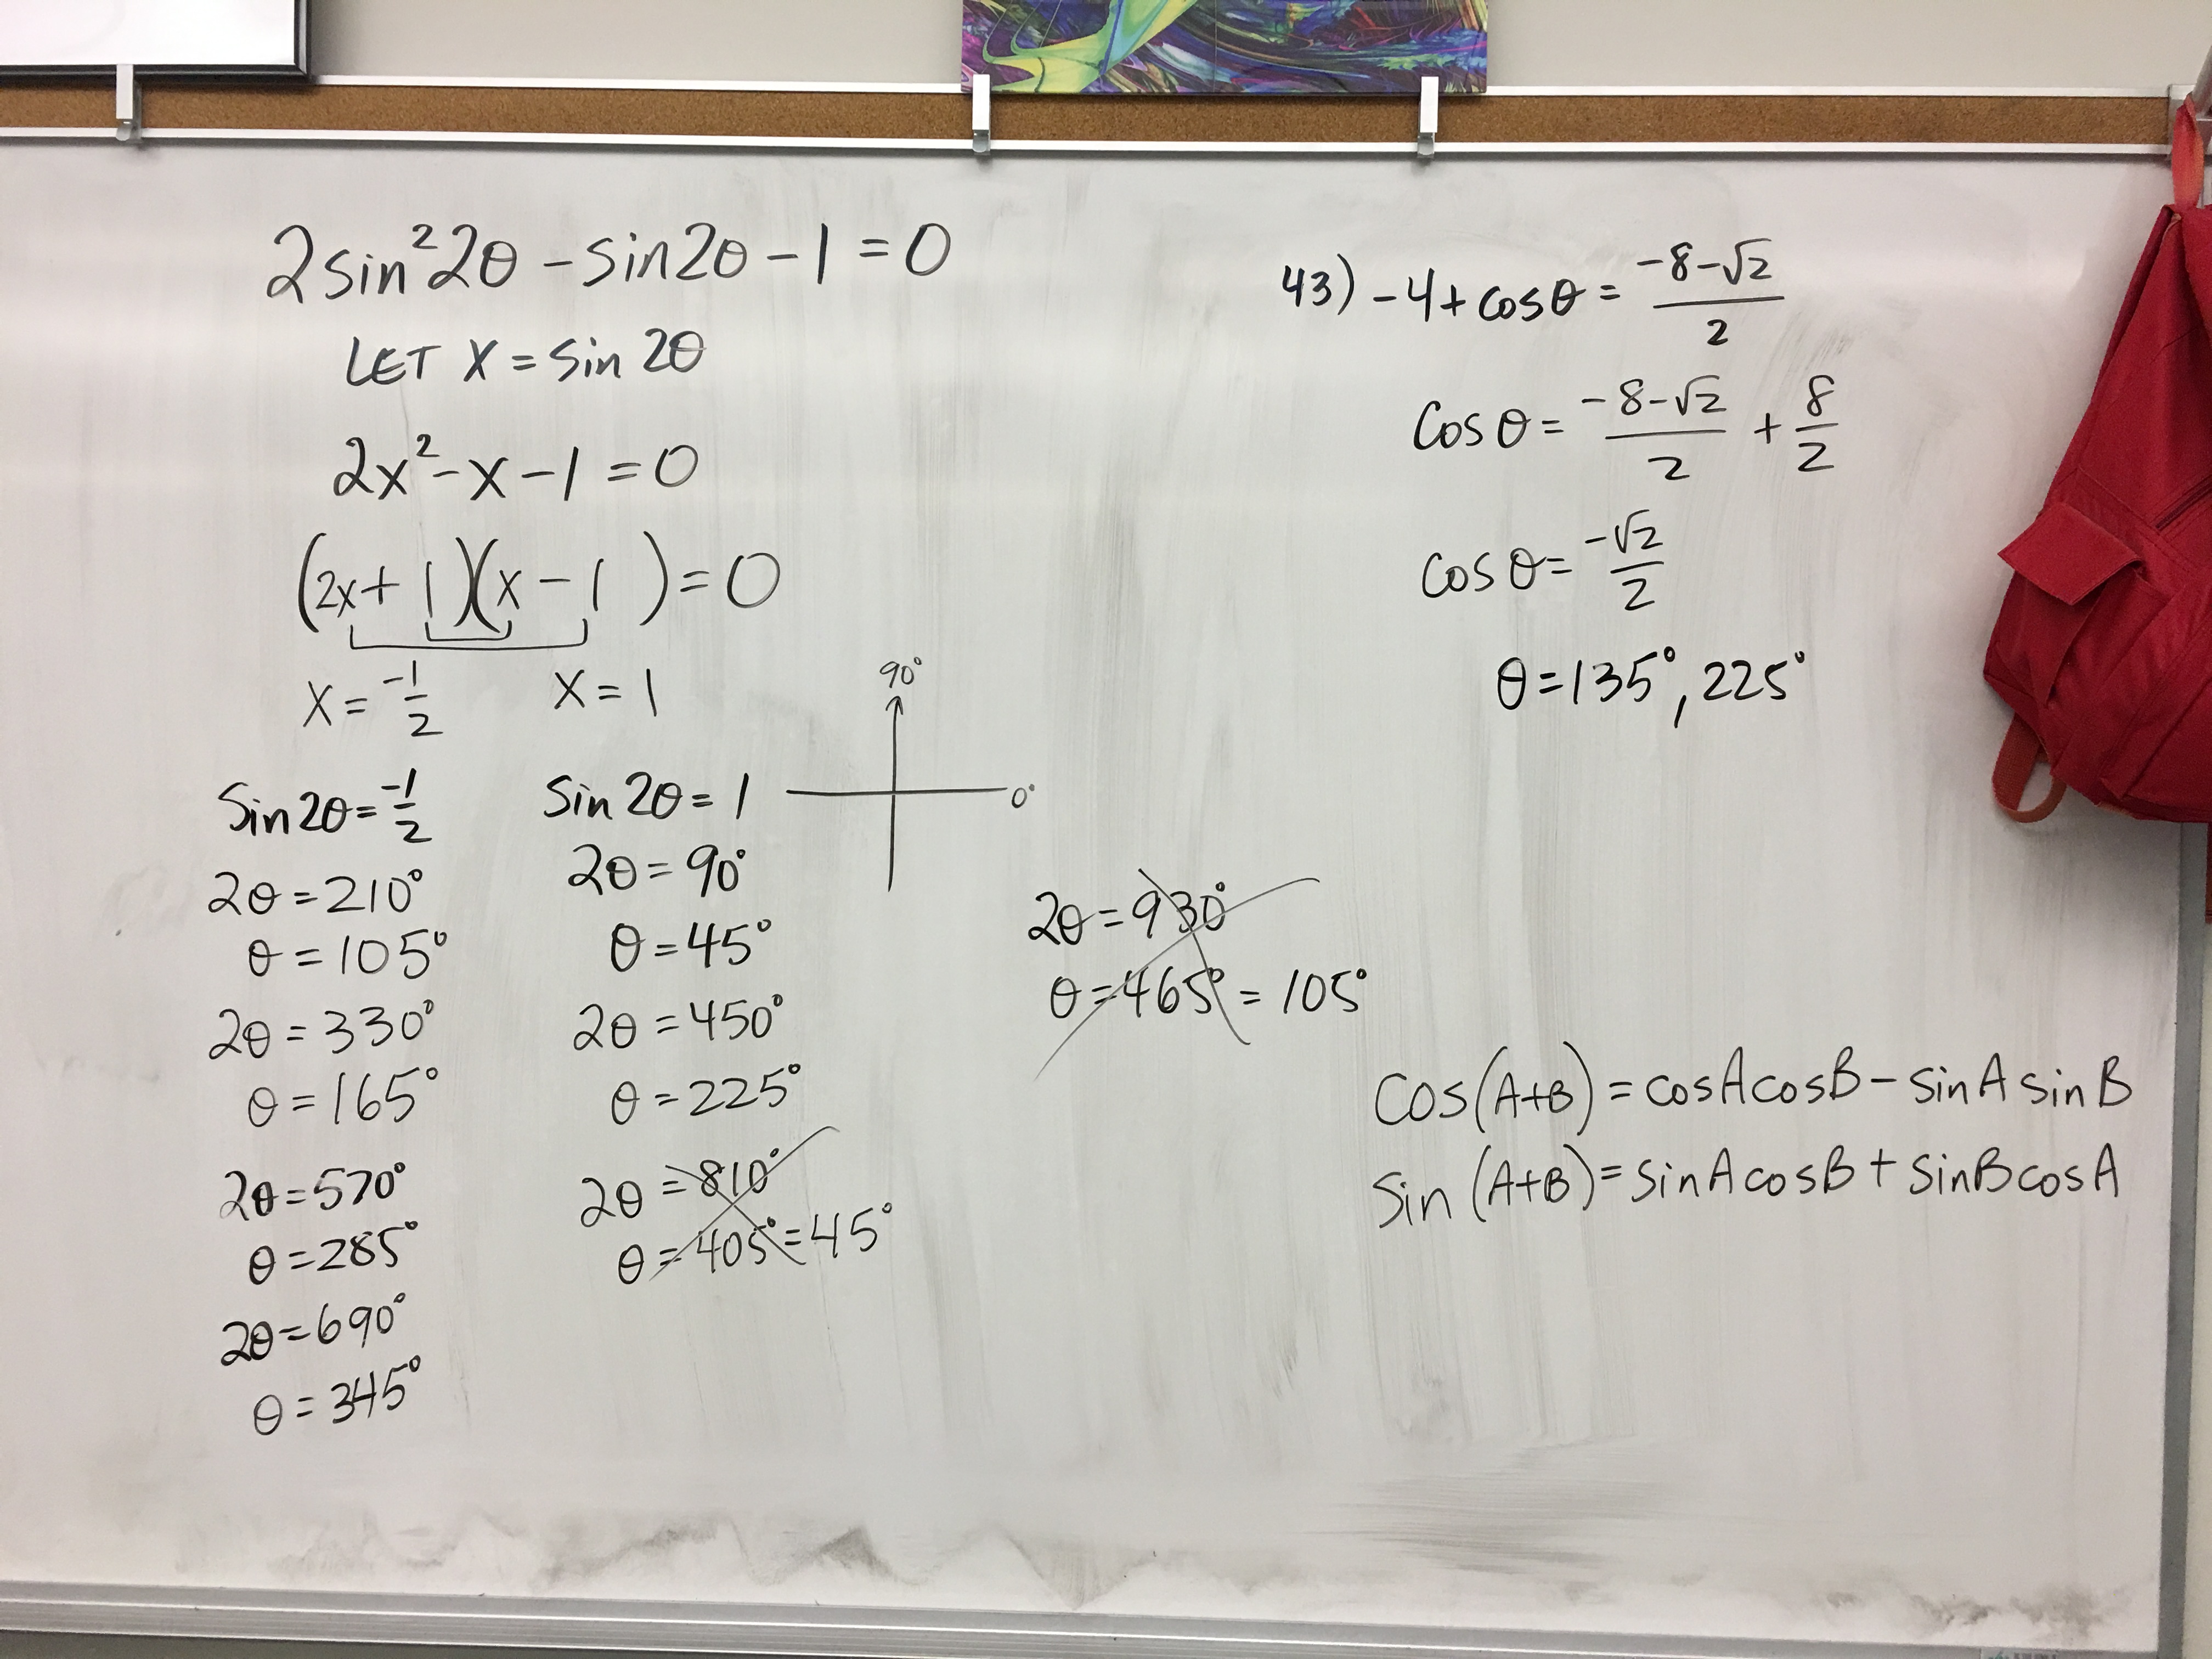 2sin²2θ - sin2θ - 1 = 0
LET X = sin 2θ
2x² - x - 1 = 0
(2x + 1)(x - 1) = 0
X = -1/2
X = 1
Sin 2θ = -1/2
2θ = 210°
θ = 105°
2θ = 330°
θ = 165°
2θ = 570°
θ = 285°
2θ = 690°
θ = 345°
Sin 2θ = 1
2θ = 90°
θ = 45°
2θ = 450°
θ = 225°
2θ = 810°
θ = 405° = 45°
90°
0°
2θ = 930°
θ = 465° = 105°
43) -4 + cosθ = (-8-√2)/2
Cos θ = (-8-√2)/2 + 8/2
Cos θ = -√2/2
θ = 135°, 225°
Cos(A+B) = cosAcosB - sinA sinB
Sin (A+B) = sinAcosB + sinBcosA